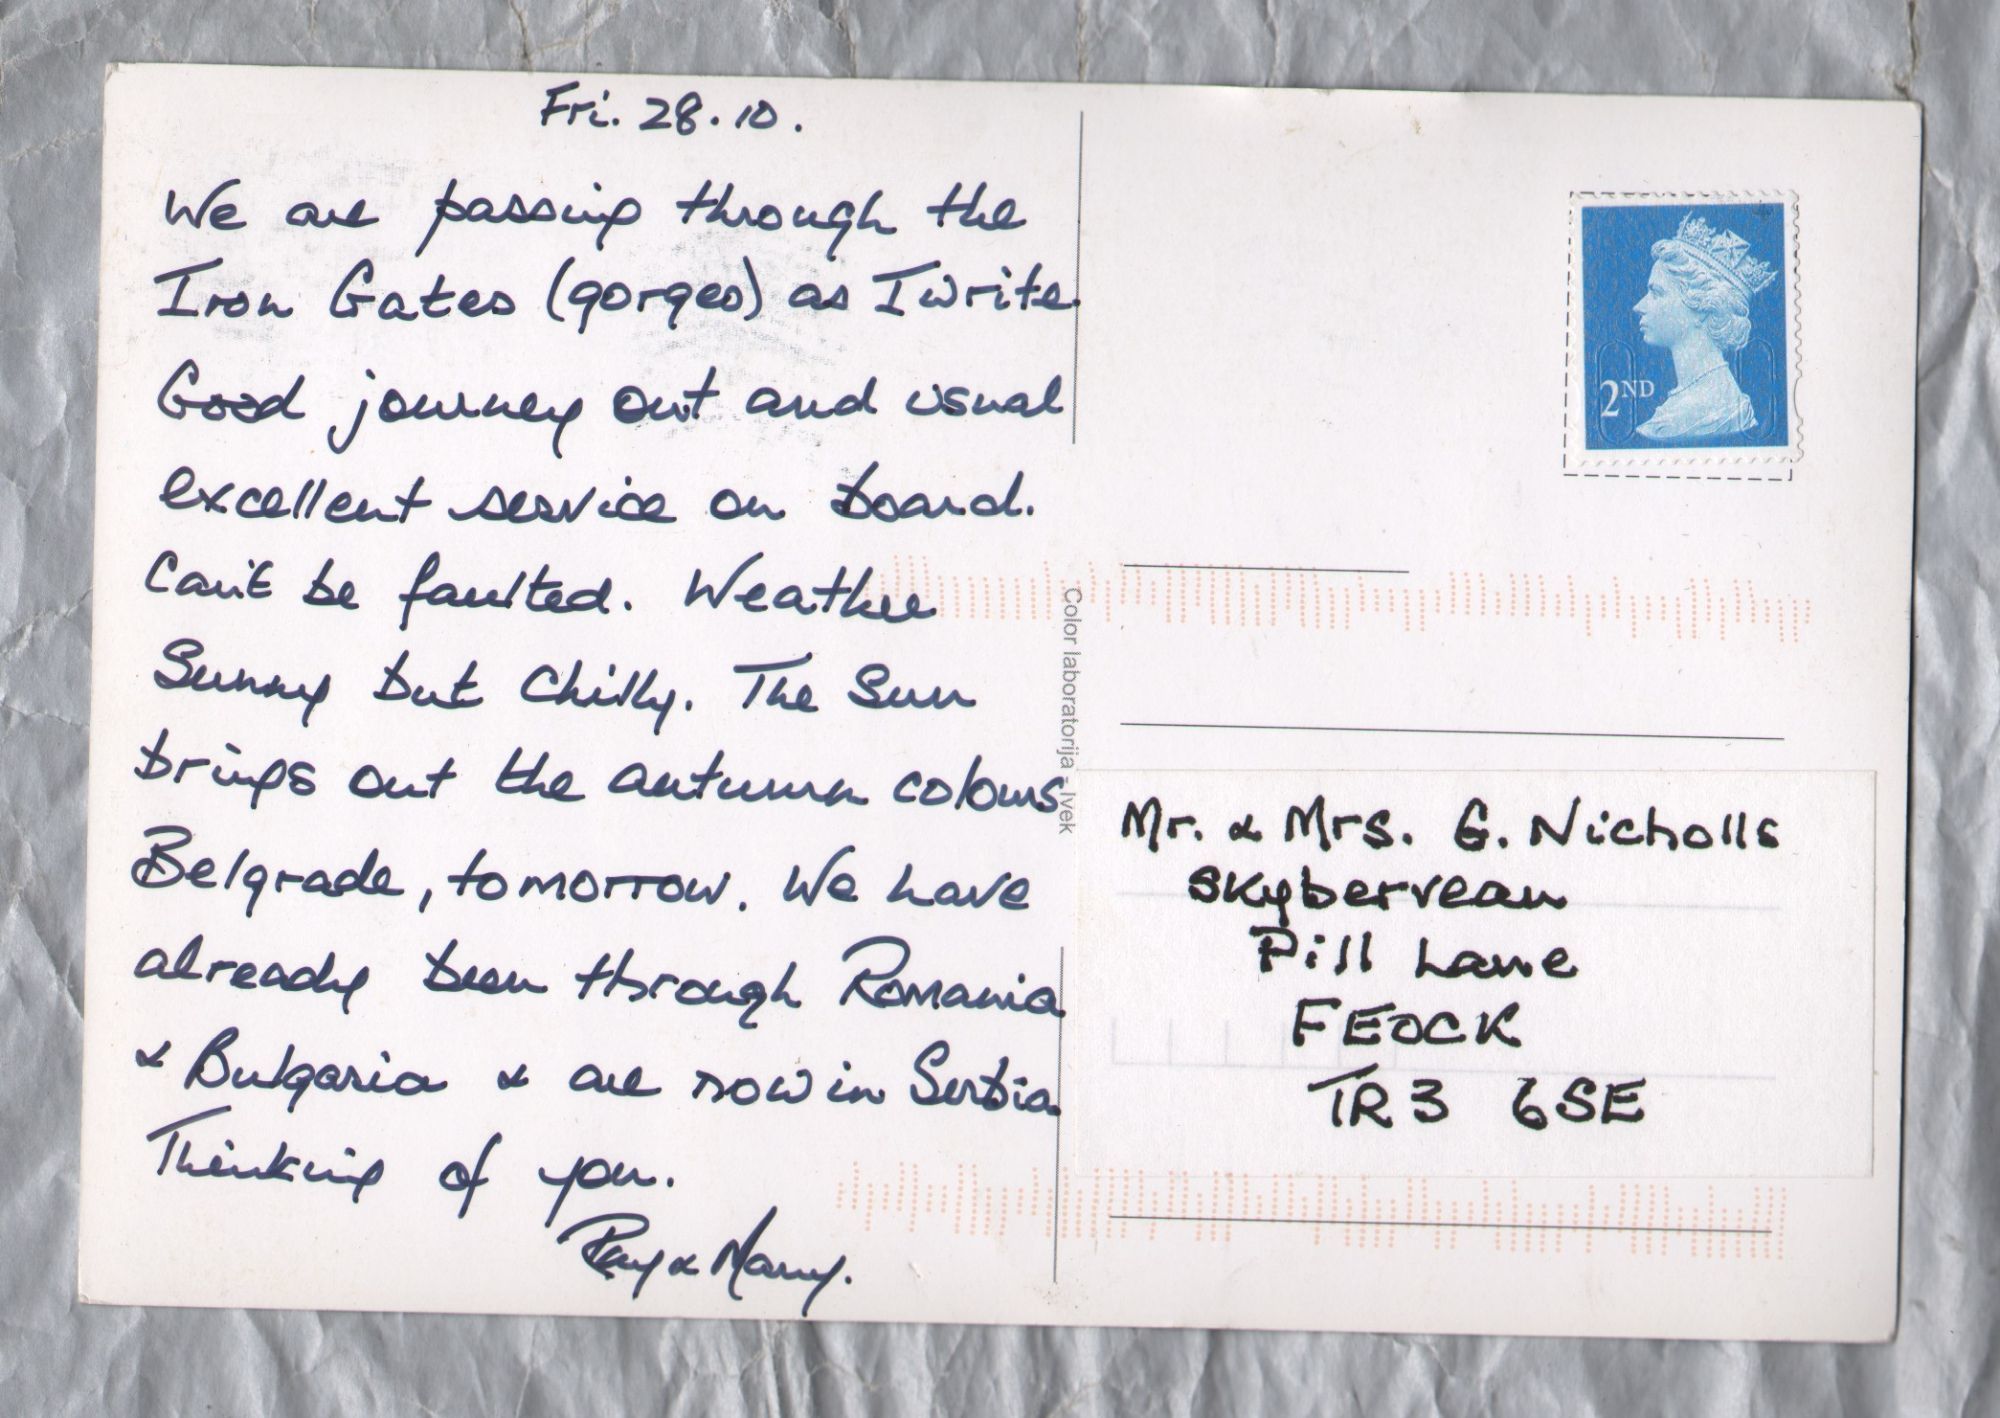 Fri. 28.10.
We are passing through the
Iron Gates (gorges) as I write.
Good journey out and usual
excellent service on board.
Can't be faulted. Weather
Sunny but chilly. The Sun
brings out the autumn colours
Belgrade, tomorrow. We have
already been through Romania
& Bulgaria & are now in Serbia.
Thinking of you.
Ray & Mary.
2ND
Color laboratorija - Ivek
Mr. & Mrs. G. Nicholls
Skybervean
Pill Lane
FEOCK
TR3 6SE